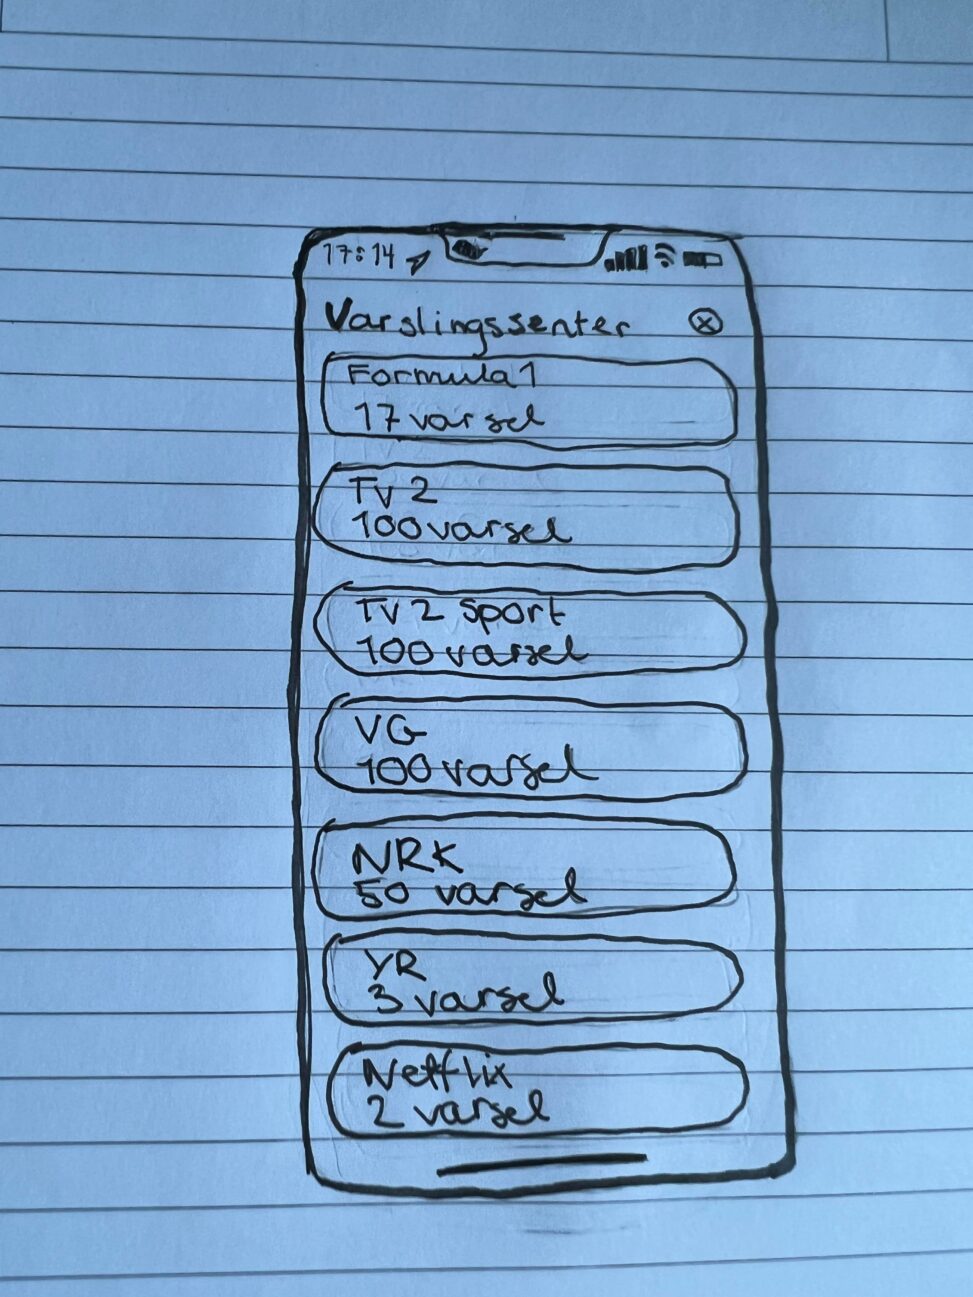 17:14
Varslingssenter
Formula 1
17 varsel
Tv 2
100 varsel
Tv 2 sport
100 varsel
VG
100 varsel
NRK
50 varsel
YR
3 varsel
Netflix
2 varsel